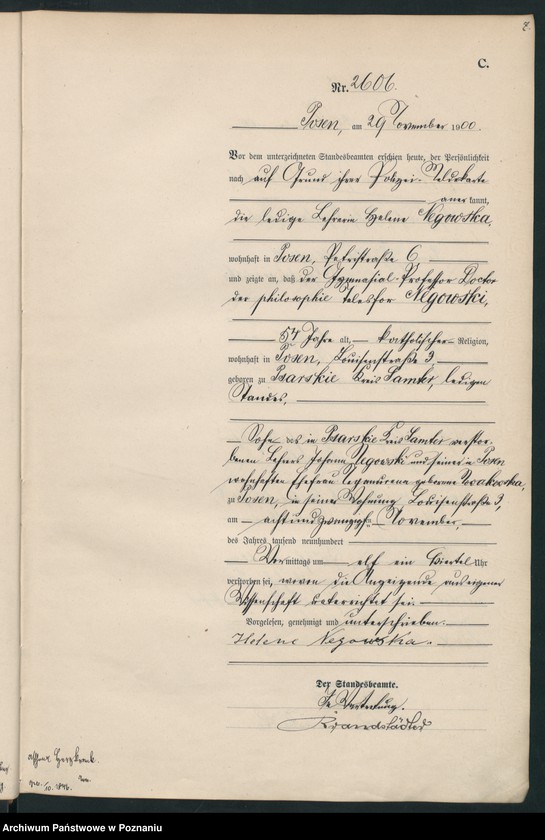 C.
Nr. 2606.
Posen, am 29 November 1900.
Vor dem unterzeichneten Standesbeamten erschien heute, der Persönlichkeit
nach auf Grund ihrer Polizei-Meldekarte
anerkannt,
die ledige Lehrerin Helene Negowska,
wohnhaft in Posen, Petristraße 6
und zeigte an, daß der Gymnasial-Professor Doctor
der philosophie Telesfor Negowski,
57 Jahre alt, katholischer Religion,
wohnhaft in Posen, Louisenstraße 3,
geboren zu Psarskie Kreis Samter, ledigen
Standes,
Sohn des in Psarskie Kreis Samter verstor-
benen Lehrers Johann Negowski und seiner in Posen
wohnhaften Ehefrau geborene Nowakowska,
zu Posen, in seiner Wohnung Louisenstraße 3,
am achtundzwanzigsten November,
des Jahres tausend neunhundert
Vormittags um elf ein Viertel Uhr
verstorben sei, wovon die Anzeigende aus eigener
Wissenschaft unterrichtet sei.
Vorgelesen, genehmigt und unterschrieben.
Helene Negowska.
Der Standesbeamte.
In Vertretung.
Brandstädter
Herzkrank.
10. 1846.
Archiwum Państwowe w Poznaniu